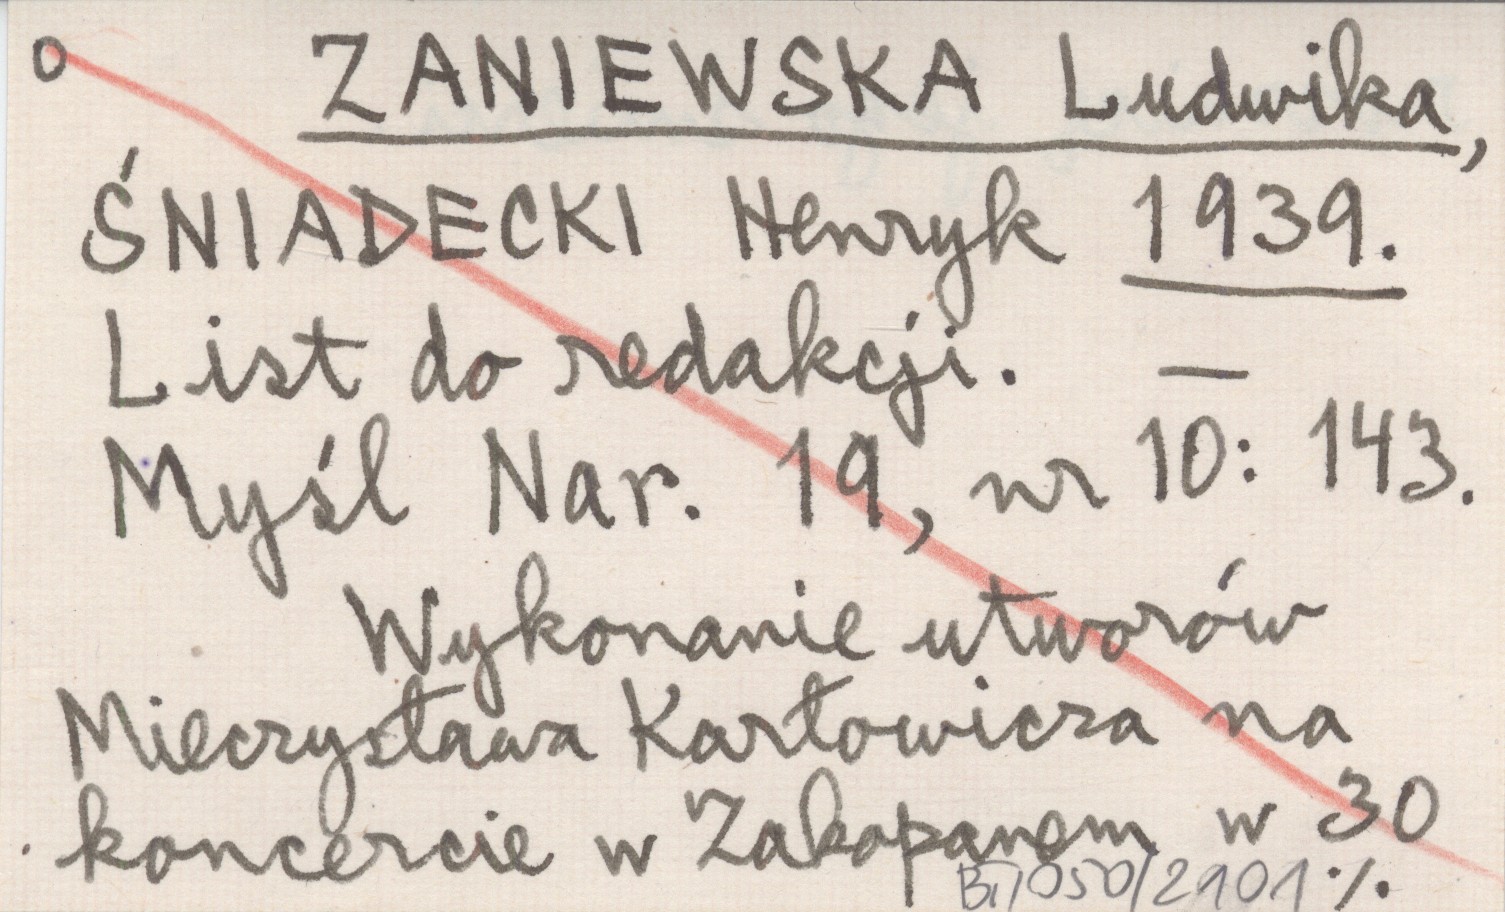 O ZANIEWSKA Ludwika,
ŚNIADECKI Henryk 1939.
List do redakcji. —
Myśl Nar. 19, nr 10: 143.
Wykonanie utworów
Mieczysława Karłowicza na
koncercie w Zakopanem w 30
Bi/050/2101 ·/.